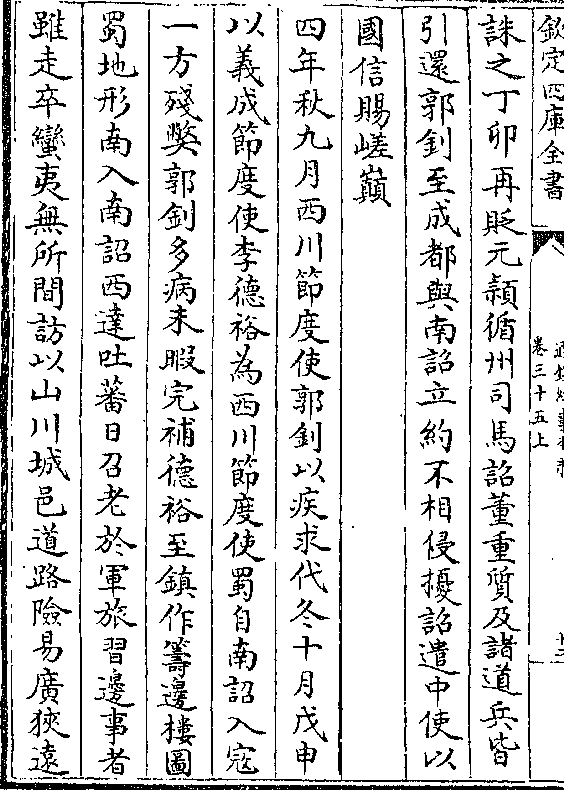 欽定四庫全書
卷三十五上
誅之丁卯再貶元頴循州司馬詔董重質及諸道兵皆
引還郭釗至成都與南詔立約不相侵擾詔遣中使以
國信賜嵯巔
四年秋九月西川節度使郭釗以疾求代冬十月戊申
以義成節度使李德裕為西川節度使蜀自南詔入寇
一方殘弊郭釗多病未暇完補德裕至鎮作籌邊樓圖
蜀地形南入南詔西達吐蕃日召老於軍旅習邊事者
雖走卒蠻夷無所間訪以山川城邑道路險易廣狹遠